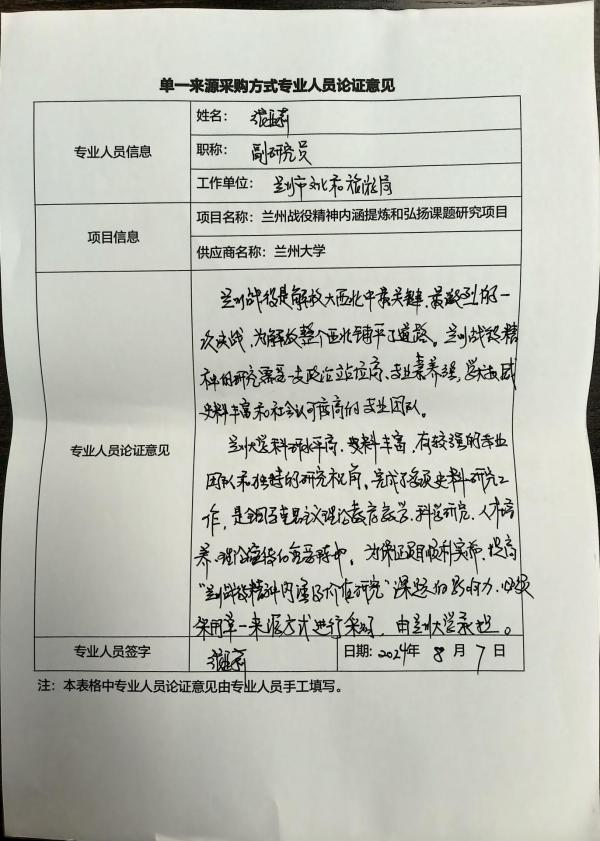 单一来源采购方式专业人员论证意见
专业人员信息
姓名：
职称： 副研究员
工作单位： 兰州市文化和旅游局
项目信息
项目名称：兰州战役精神内涵提炼和弘扬课题研究项目
供应商名称：兰州大学
专业人员论证意见
兰州战役是解放大西北中最关键、最激烈的一
次决战，为解放整个西北铺平了道路。兰州战役精
神的研究需要一支政治站位高、专业素养强，学术权威
史料丰富和社会认可度高的专业团队。
兰州大学科研水平高、史料丰富，有较强的专业
团队和独特的研究视角，完成了多项史料研究工
作，是全国马克思主义理论教育教学、科学研究、人才培
养、理论宣传的重要阵地。为保证项目顺利实施，提高
“兰州战役精神内涵及价值研究”课题的影响力，必须
采用单一来源方式进行采购，由兰州大学承担。
专业人员签字
日期: 2024年 8 月 7 日
注：本表格中专业人员论证意见由专业人员手工填写。